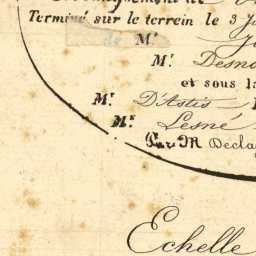 Terminé sur le terrein le 3 J
de Mr.
Mr. Desno
et sous la
Mr. D'Astis
Mr. Lesné
Par M Decla
Echelle